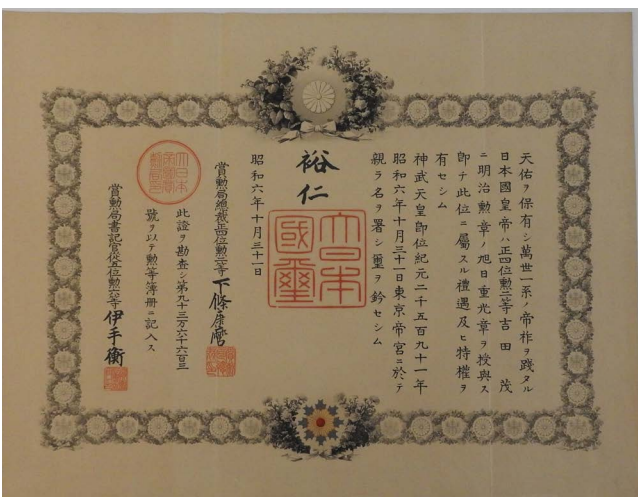 天佑ヲ保有シ萬世一系ノ帝祚ヲ踐タル
日本國皇帝ハ正四位勲二等吉田茂
ニ明治勲章ノ旭日重光章ヲ授與ス
即ナ此位ニ屬スル禮遇及ヒ特權ヲ
有セシム
神武天皇即位紀元二千五百九十一年
昭和六年十月三十一日東京帝宮ニ於テ
親ラ名ヲ署シ璽ヲ鈐セシム
裕仁
大日本
國璽
昭和六年十月三十一日
賞勲局總裁正四位勲二等下條康麿
此證ヲ勘査シ第九十三万六千六百三
號ヲ以テ勲等簿册ニ記入ス
賞勲局書記官從五位勲六等伊手衡